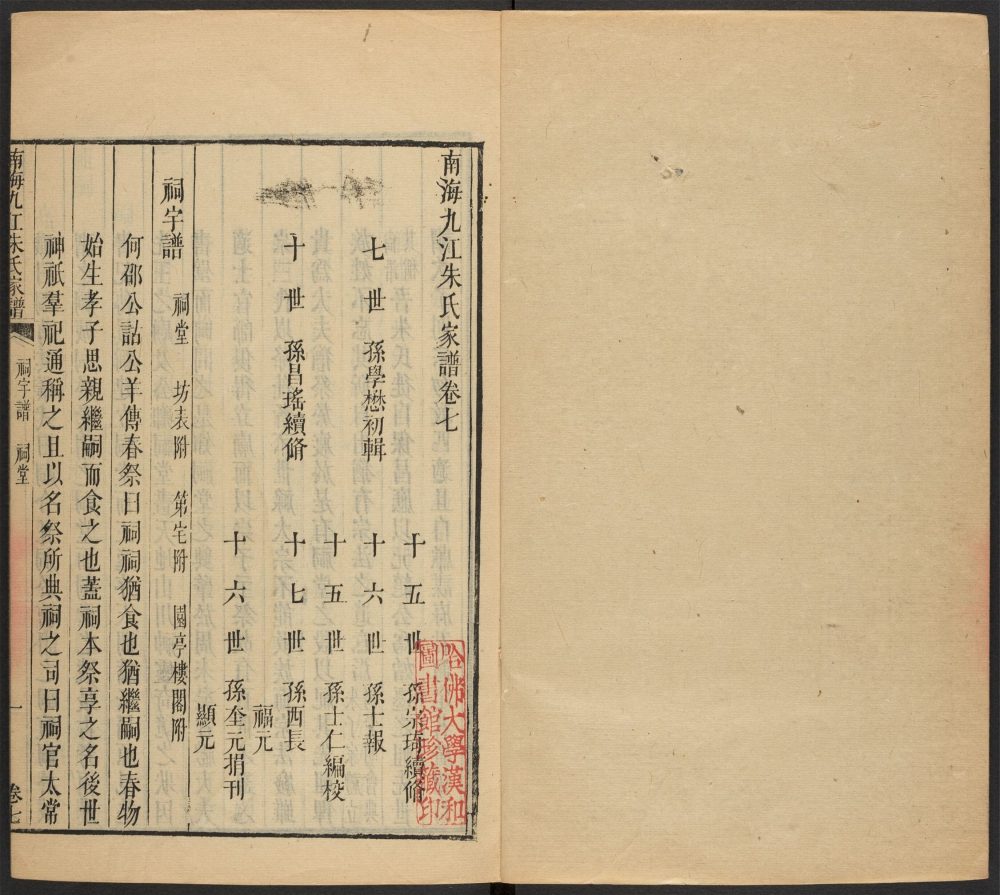 南海九江朱氏家譜卷七
十五世 孫宗琦續脩
七世 孫學懋初輯 十六世 孫士報
十五世 孫士仁編校
十世 孫昌瑤續脩 十七世 孫西長
福元
十六世 孫奎元捐刊
顯元
祠宇譜 祠堂 坊表附 第宅附 園亭樓閣附
何邵公詁公羊傳春祭曰祠祠猶食也猶繼嗣也春物
始生孝子思親繼嗣而食之也蓋祠本祭享之名後世
神祇羣祀通稱之且以名祭所典祠之司曰祠官太常
南海九江朱氏家譜 祠宇譜 祠堂 一 卷七
哈佛大學漢和
圖書館珍藏印